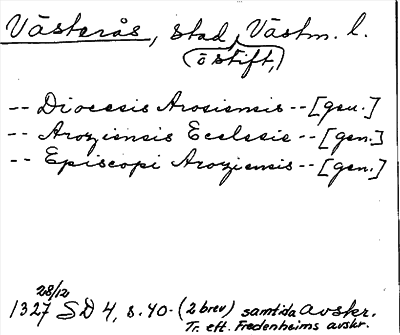 Västerås, stad, Västm. l.
(o stift,)
-- Diocesis Arosiensis -- [gen.]
-- Aroziensis Ecclesie -- [gen.]
-- Episcopi Aroziensis -- [gen.]
28/12
1327 SD 4, s. 40. (2 brev) samtida avskr.
Tr. eft. Fredenheims avskr.